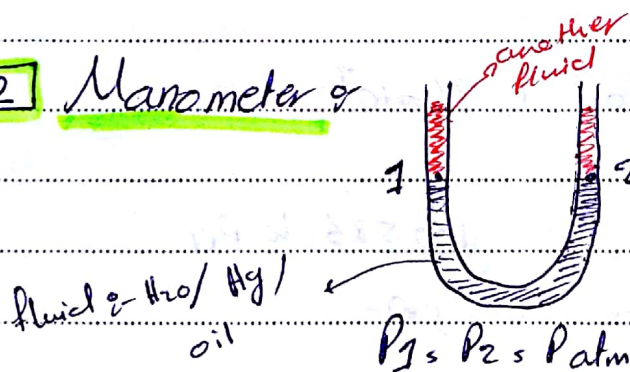 2 Manometer :-
another
fluid
1 2
fluid :- H2O/ Hg/
oil
P1 = P2 = Patm